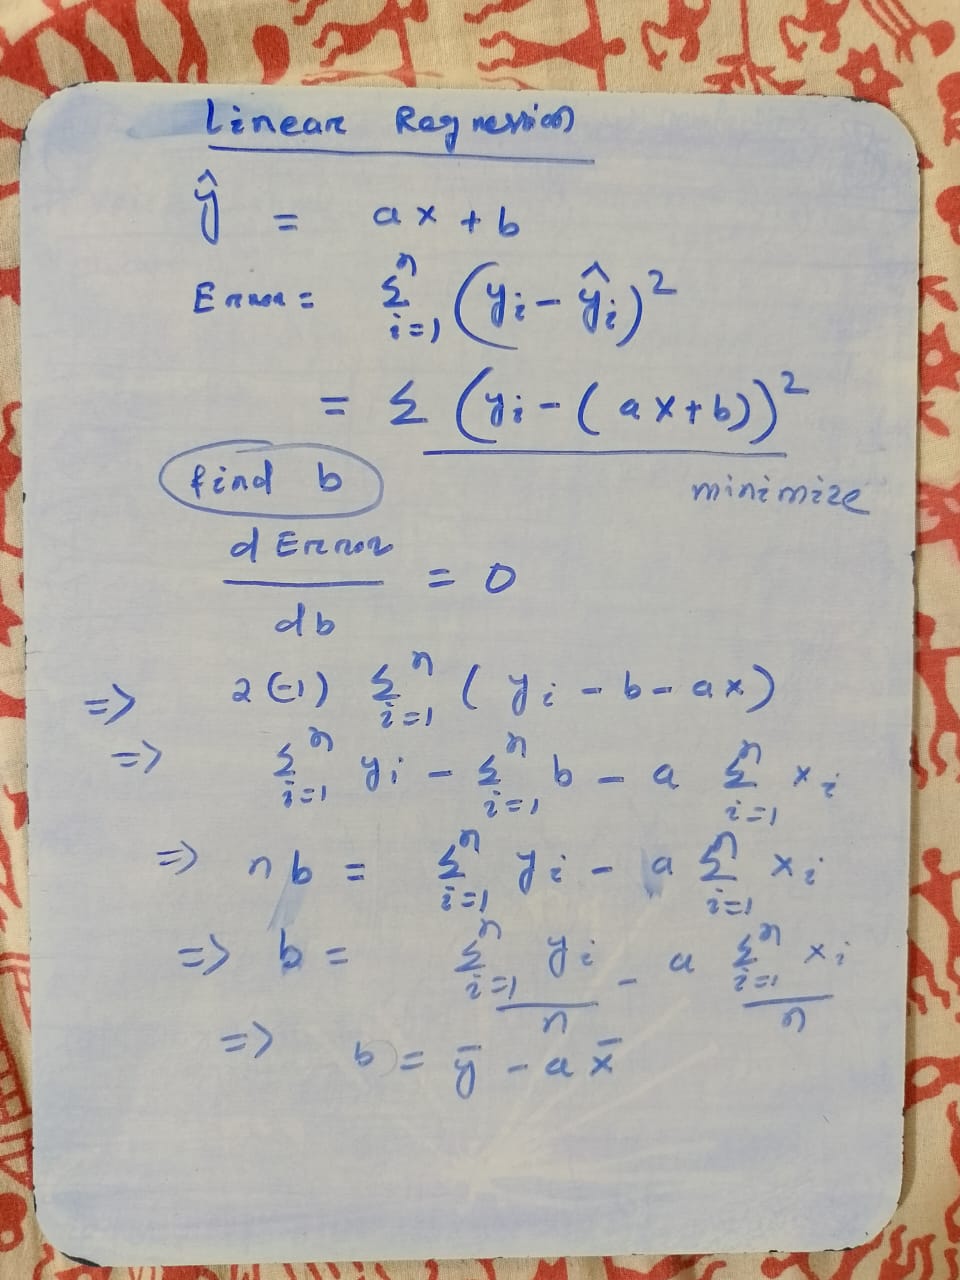 Linear Regression
ŷ = ax + b
Error = Σ_{i=1}^{n} (y_i - ŷ_i)^2
= Σ (y_i - (ax+b))^2
minimize
find b
d Error / db = 0
=> 2(-1) Σ_{i=1}^{n} (y_i - b - ax)
=> Σ_{i=1}^{n} y_i - Σ_{i=1}^{n} b - a Σ_{i=1}^{n} x_i
=> nb = Σ_{i=1}^{n} y_i - a Σ_{i=1}^{n} x_i
=> b = Σ_{i=1}^{n} y_i / n - a Σ_{i=1}^{n} x_i / n
=> b = ȳ - a x̄